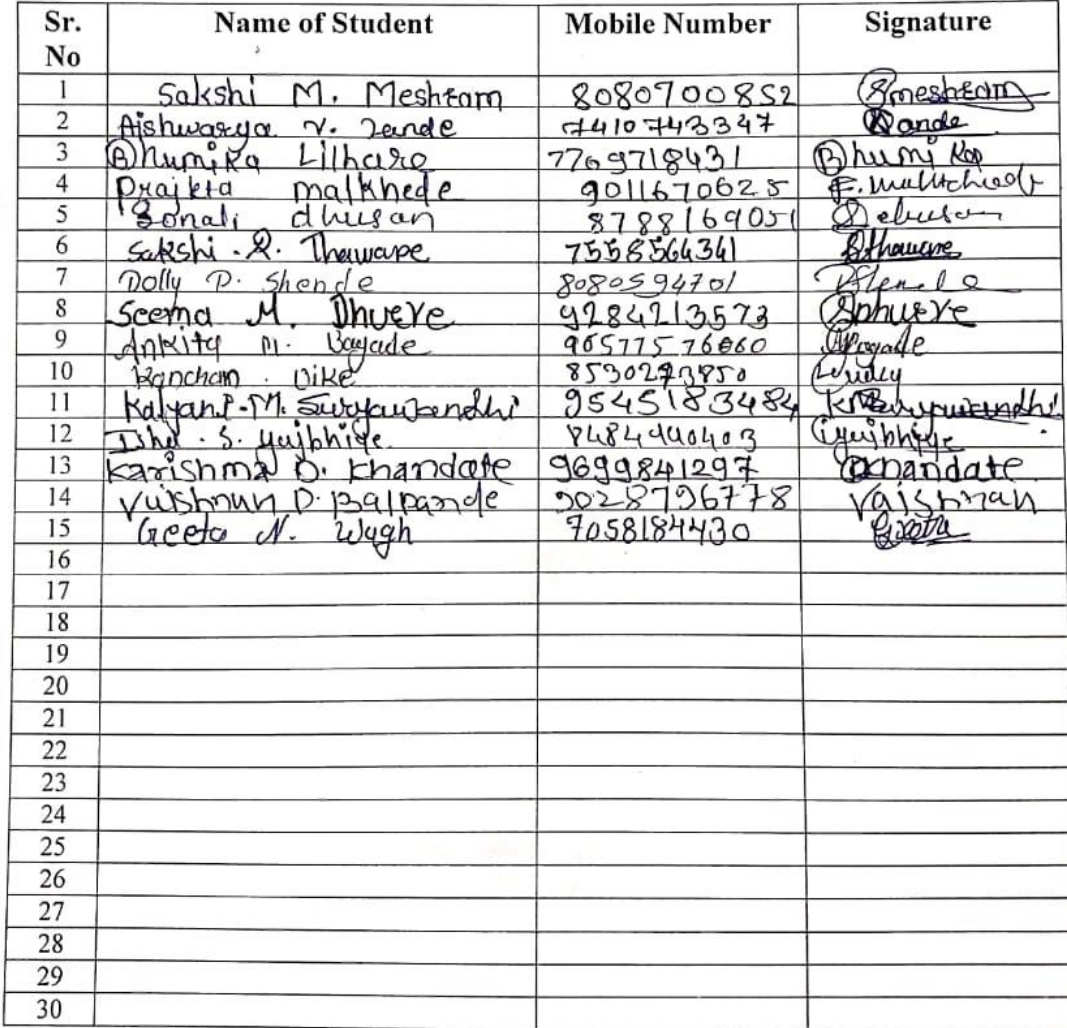 Sr. No Name of Student Mobile Number Signature
1 Sakshi M. Meshram 8080700852 Smeshram
2 Aishwarya V. Zande 7410743347
3 Bhumika Lilhare 7769718431 Bhumika
4 Prajkta malkhede 9011670625
5 Sonali dhusan 8788169051
6 Sakshi . R. Thaware 7558564361 Sthaware
7 Dolly D. Shende 8080594701
8 Seema M. Dhurve 9284213573 Sphurve
9 Ankita M. Bagade
10 Kanchan . Uike 8530273850
11 Kalyani. M. Suryawandhi 9545183484
12 Ishu . S. yujbhiye 8484940403
13 Karishma D. Khandate 9699841297 Khandate
14 D. Balpande 9028796778
15 Geeta N. Wagh 7058184430 Geeta
16
17
18
19
20
21
22
23
24
25
26
27
28
29
30